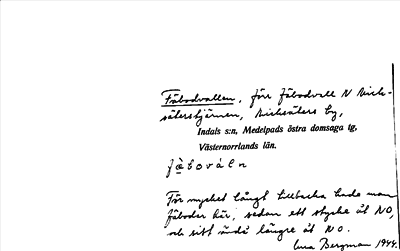 Fäbodvallen, förr fäbodvall N Birk-
säterstjärnen, Birksäters by,
Indals s:n, Medelpads östra domsaga tg,
Västernorrlands län.
För mycket långt tillbaka hade man
fäboder här, sedan ett stycke åt NO,
och sist ändå längre åt NO.
Erna Bergman 1944.